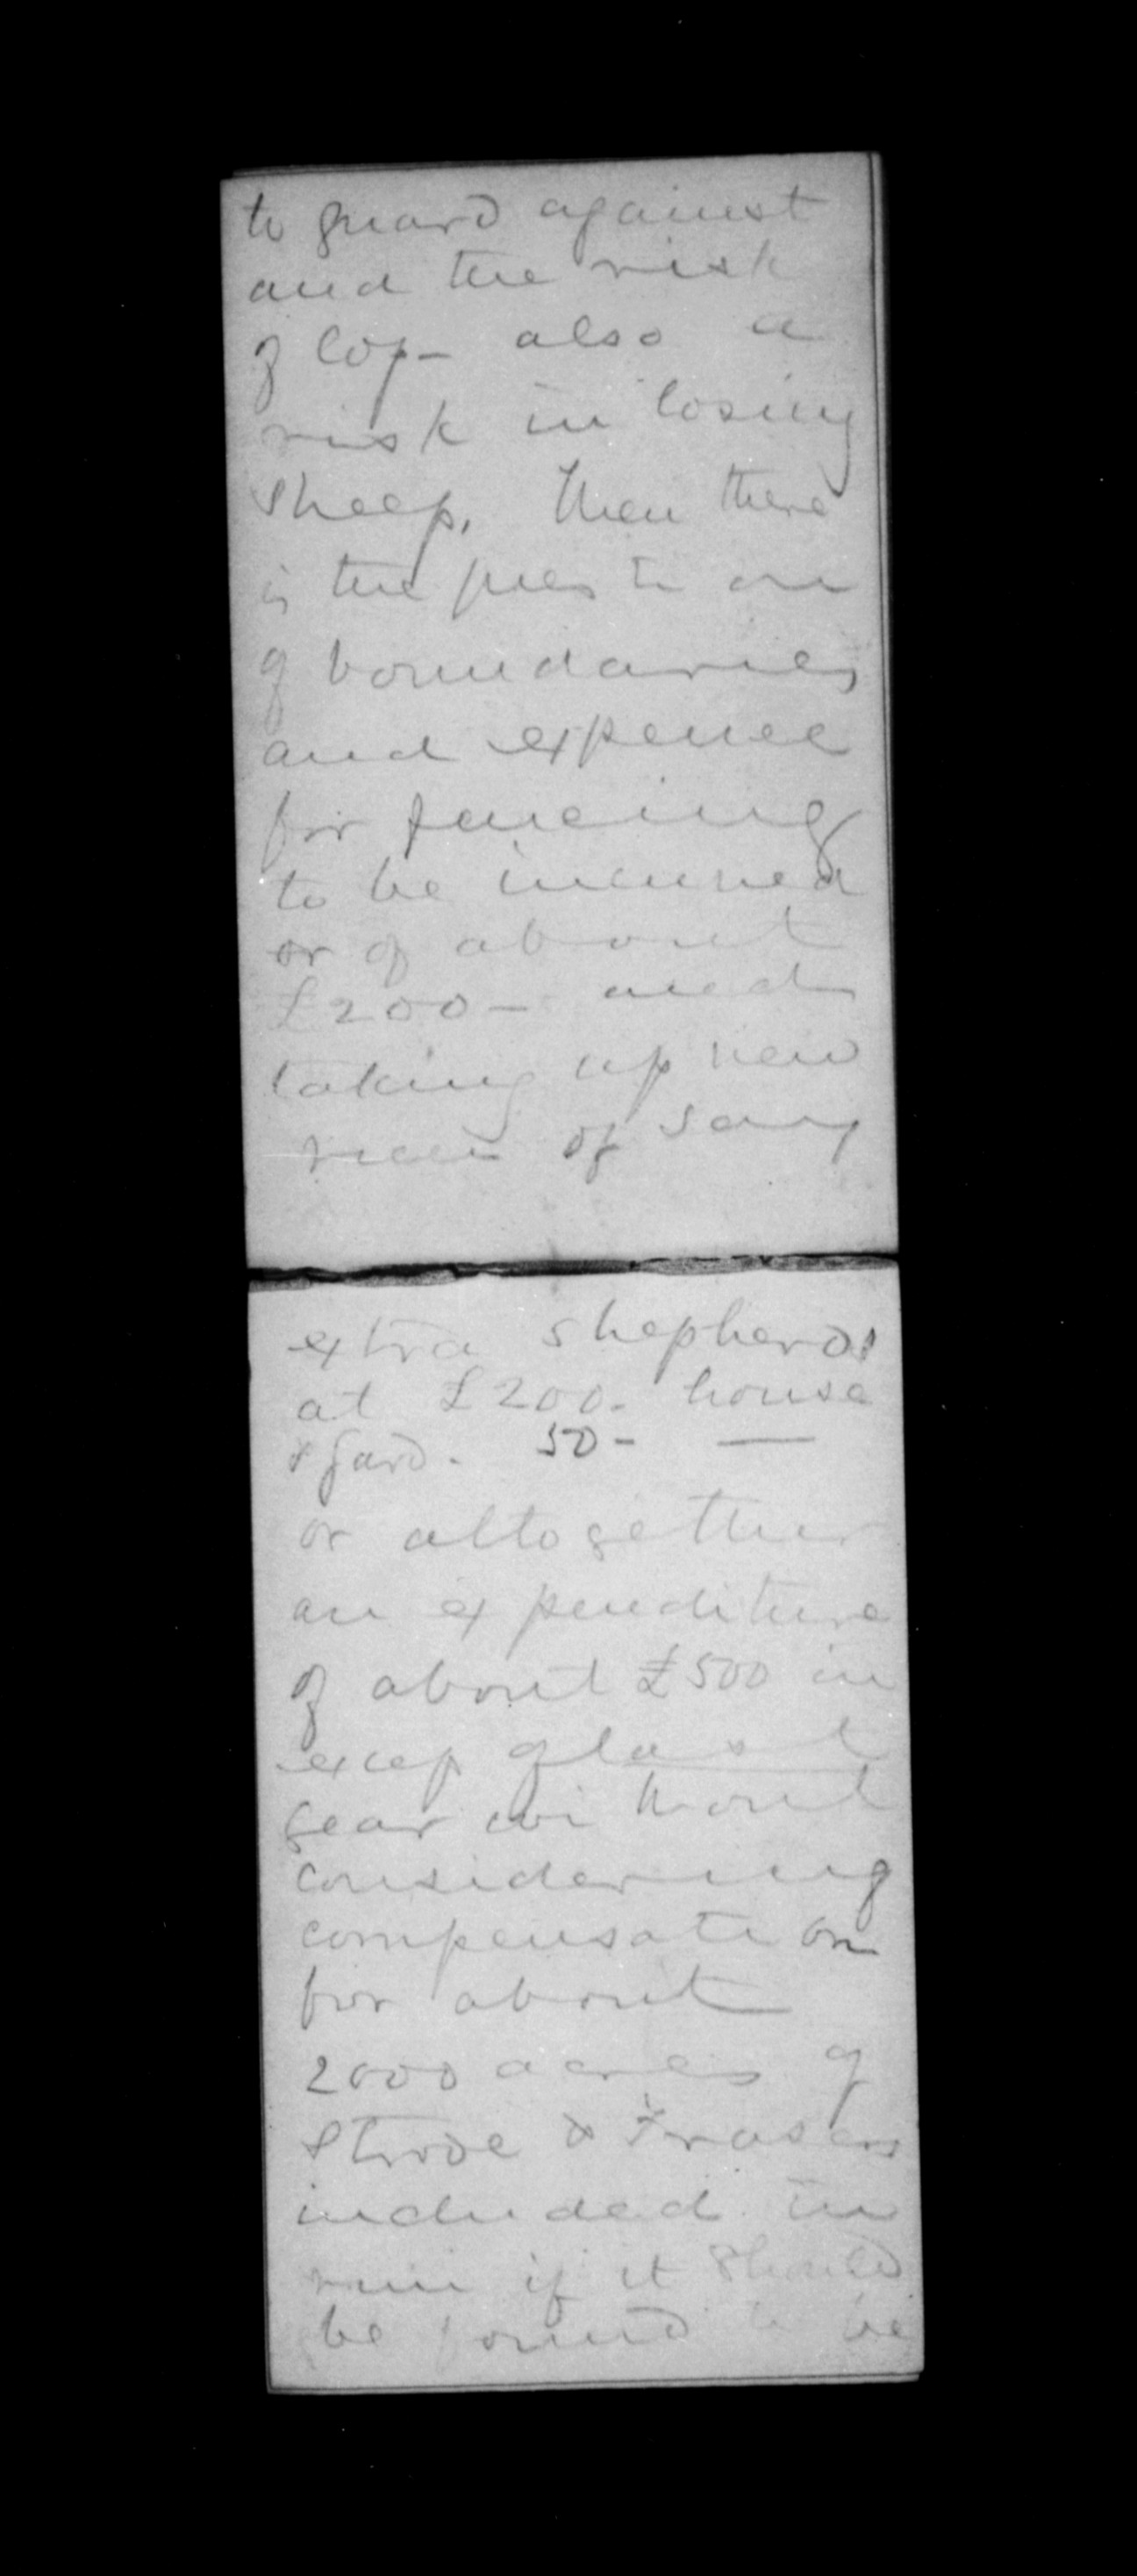 to guard against
and the risk
of loss - also a
risk in losing
sheep. Then there
is the question
of boundaries
and expence
for fencing
to be incurred
or of about
£200 - and
taking up new
of say
extra shepherds
at £200. house
& gard. 50 - —
or altogether
an expenditure
of about £500 in
excess of last
year without
considering
compensation
for about
2000 acres of
Strode & Frasers
included in
run if it should
be found to be